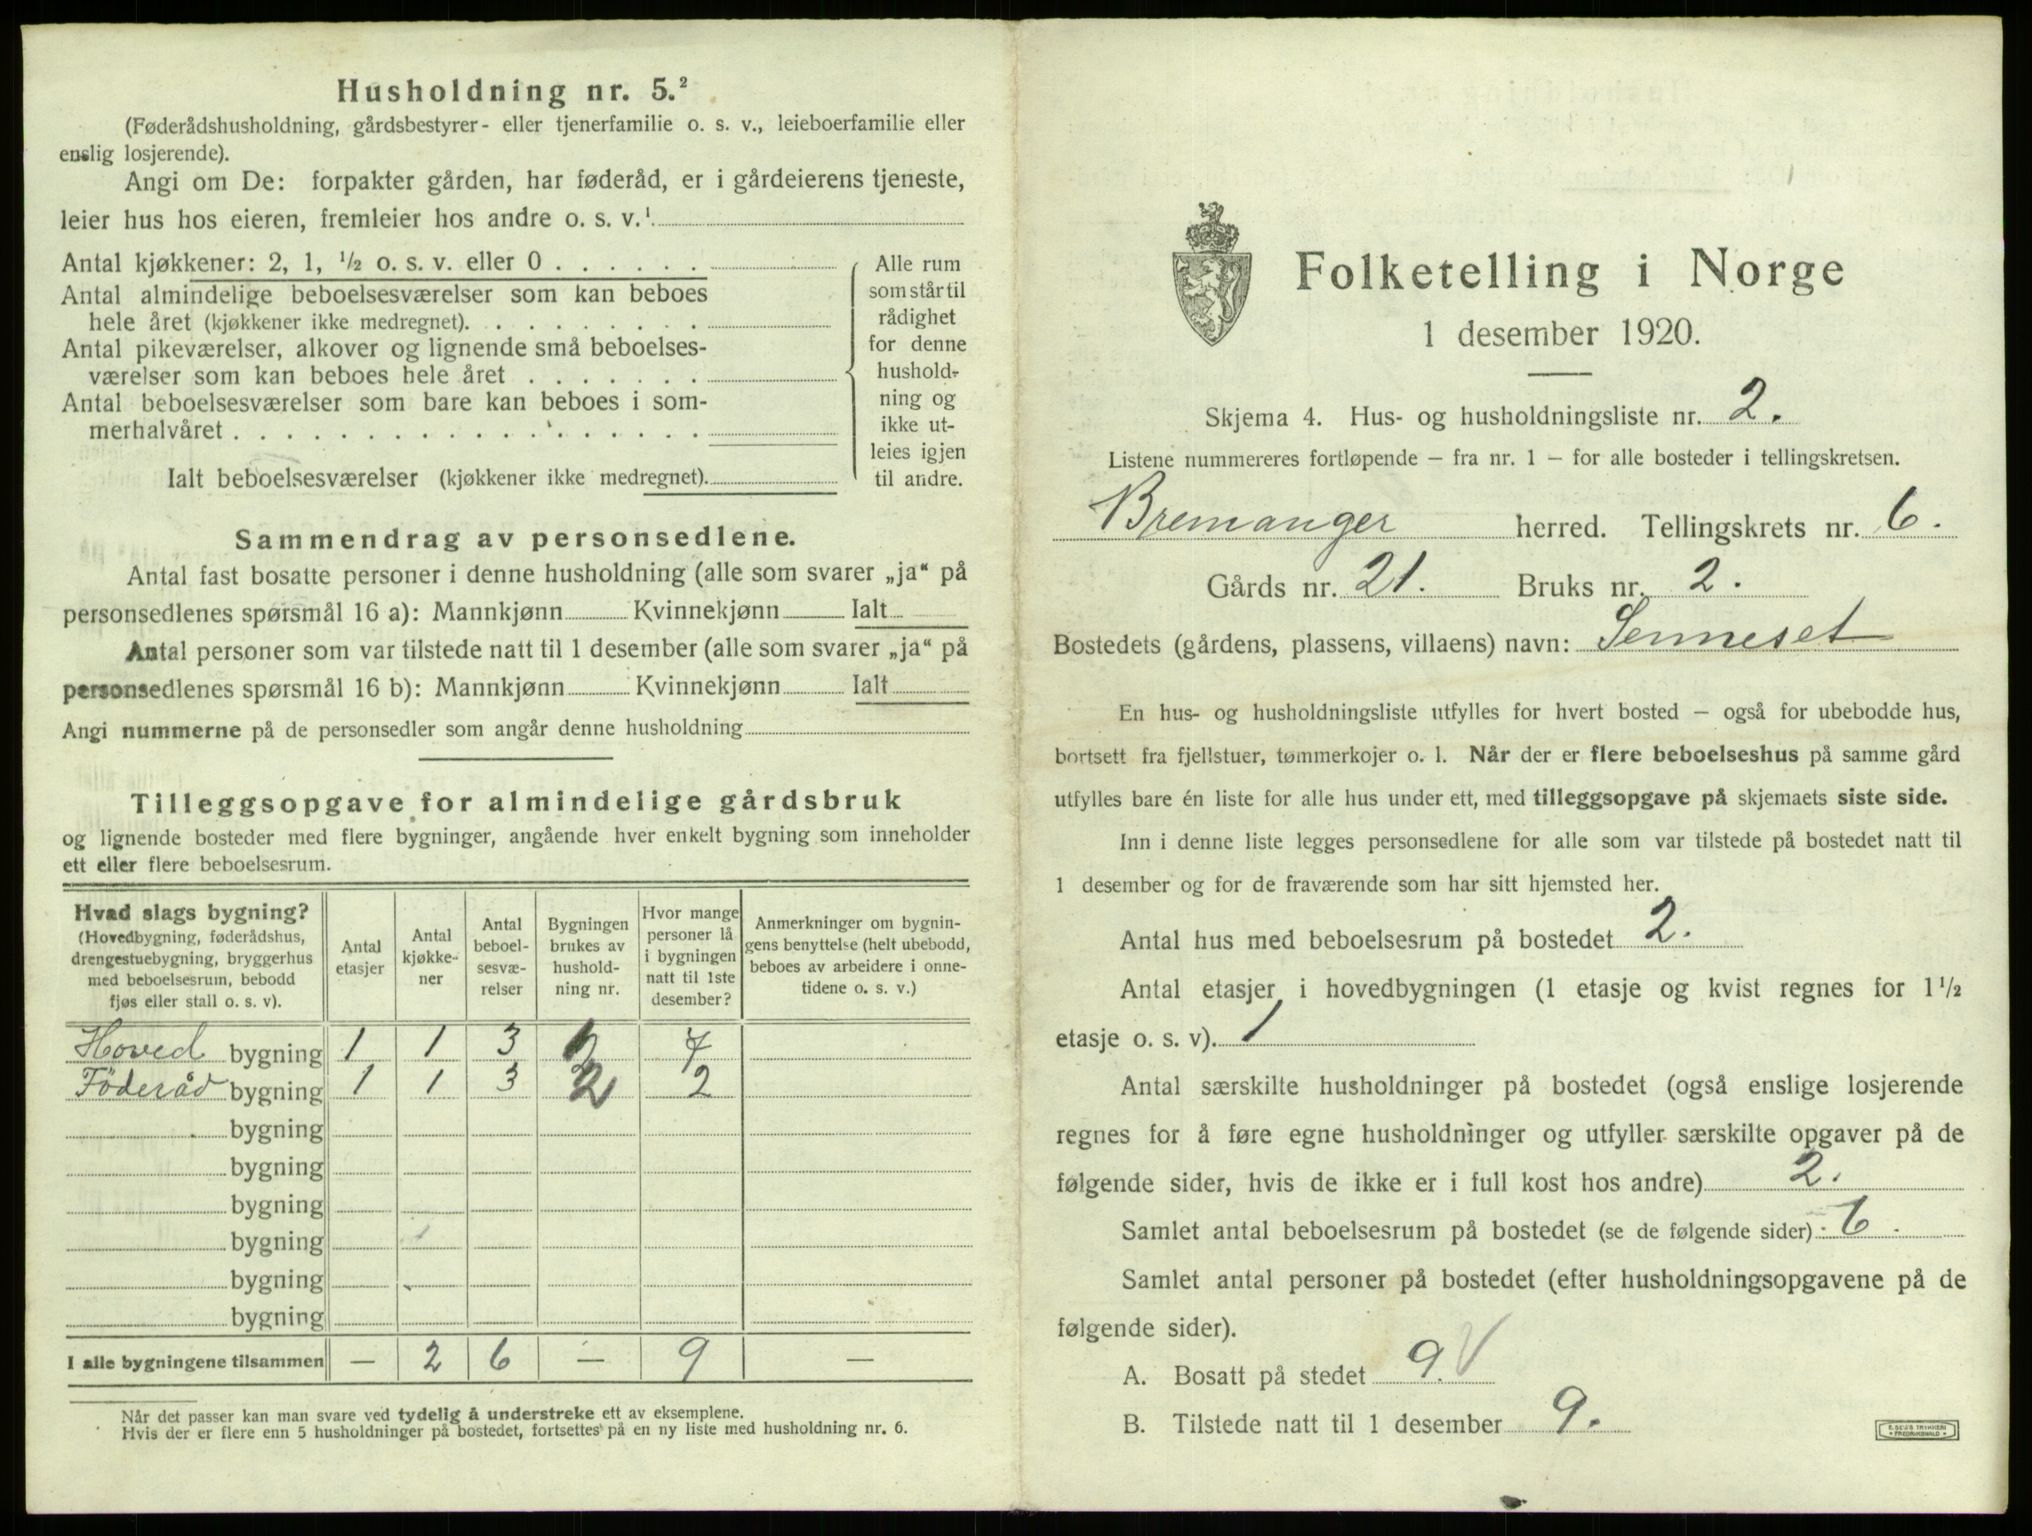 Husholdning nr. 5.²
(Føderådshusholdning, gårdsbestyrer- eller tjenerfamilie o. s. v., leieboerfamilie eller
enslig losjerende).
Angi om De: forpakter gården, har føderåd, er i gårdeierens tjeneste,
leier hus hos eieren, fremleier hos andre o. s. v.¹
Antal kjøkkener: 2, 1, ½ o. s. v. eller 0 . . . . . .
Antal almindelige beboelsesværelser som kan beboes
hele året (kjøkkener ikke medregnet). . . . . . . . .
Antal pikeværelser, alkover og lignende små beboelses-
værelser som kan beboes hele året . . . . . . .
Antal beboelsesværelser som bare kan beboes i som-
merhalvåret . . . . . . . . . . . . . . . . . .
Ialt beboelsesværelser (kjøkkener ikke medregnet).
Alle rum
som står til
rådighet
for denne
hushold-
ning og
ikke ut-
leies igjen
til andre.
Sammendrag av personsedlene.
Antal fast bosatte personer i denne husholdning (alle som svarer „ja“ på
personsedlenes spørsmål 16 a): Mannkjønn Kvinnekjønn Ialt
Antal personer som var tilstede natt til 1 desember (alle som svarer „ja“ på
personsedlenes spørsmål 16 b): Mannkjønn Kvinnekjønn Ialt
Angi nummerne på de personsedler som angår denne husholdning
Tilleggsopgave for almindelige gårdsbruk
og lignende bosteder med flere bygninger, angående hver enkelt bygning som inneholder
ett eller flere beboelsesrum.
Hvad slags bygning?
(Hovedbygning, føderådshus,
drengestuebygning, bryggerhus
med beboelsesrum, bebodd
fjøs eller stall o. s. v).
Antal
etasjer
Antal
kjøkke-
ner
Antal
beboel-
sesvæ-
relser
Bygningen
brukes av
hushold-
ning nr.
Hvor mange
personer lå
i bygningen
natt til 1ste
desember?
Anmerkninger om bygnin-
gens benyttelse (helt ubebodd,
beboes av arbeidere i onne-
tidene o. s. v.)
Hoved bygning 1 1 3 1 7
Föderåd bygning 1 1 3 2 2
bygning
bygning
bygning
bygning
bygning
bygning
I alle bygningene tilsammen — 2 6 — 9 —
Når det passer kan man svare ved tydelig å understreke ett av eksemplene.
Hvis der er flere enn 5 husholdninger på bostedet, fortsettes på en ny liste med husholdning nr. 6.
Folketelling i Norge
1 desember 1920.
Skjema 4. Hus- og husholdningsliste nr. 2.
Listene nummereres fortløpende — fra nr. 1 — for alle bosteder i tellingskretsen.
Bremanger herred. Tellingskrets nr. 6.
Gårds nr. 21. Bruks nr. 2.
Bostedets (gårdens, plassens, villaens) navn: Senneset
En hus- og husholdningsliste utfylles for hvert bosted — også for ubebodde hus,
bortsett fra fjellstuer, tømmerkojer o. l. Når der er flere beboelseshus på samme gård
utfylles bare én liste for alle hus under ett, med tilleggsopgave på skjemaets siste side.
Inn i denne liste legges personsedlene for alle som var tilstede på bostedet natt til
1 desember og for de fraværende som har sitt hjemsted her.
Antal hus med beboelsesrum på bostedet 2.
Antal etasjer i hovedbygningen (1 etasje og kvist regnes for 1½
etasje o. s. v). 1
Antal særskilte husholdninger på bostedet (også enslige losjerende
regnes for å føre egne husholdninger og utfyller særskilte opgaver på de
følgende sider, hvis de ikke er i full kost hos andre) 2.
Samlet antal beboelsesrum på bostedet (se de følgende sider) 6.
Samlet antal personer på bostedet (efter husholdningsopgavene på de
følgende sider).
A. Bosatt på stedet 9. V
B. Tilstede natt til 1 desember 9.